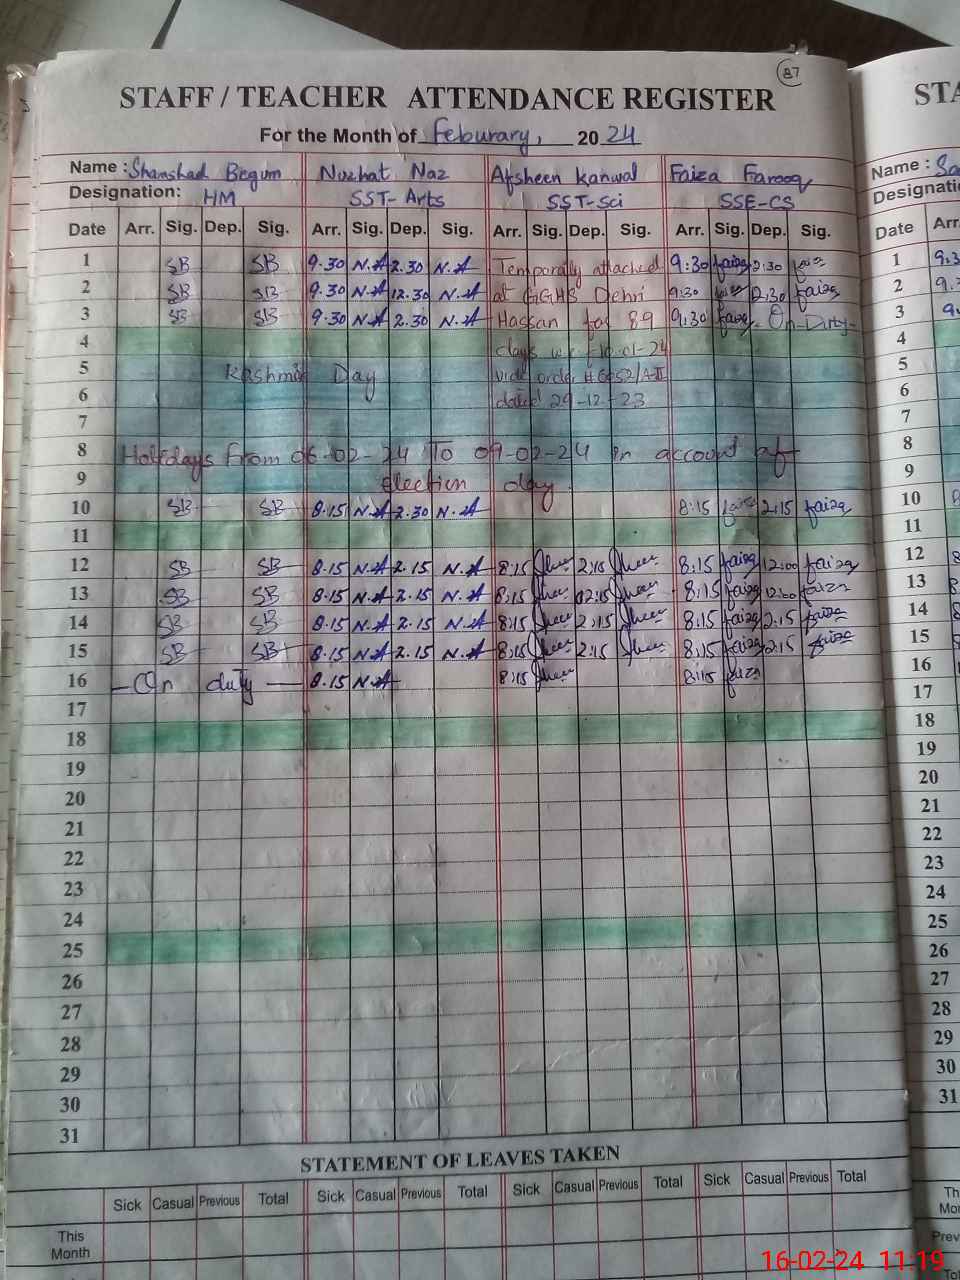 87
STAFF / TEACHER ATTENDANCE REGISTER
For the Month of Feburary, 2024
Name : Shamshad Begum Nuzhat Naz Afsheen Kanwal Faiza Farooq
Designation: HM SST-Arts SST-Sci SSE-CS
Date Arr. Sig. Dep. Sig. Arr. Sig. Dep. Sig. Arr. Sig. Dep. Sig. Arr. Sig. Dep. Sig.
1 SB SB 9.30 N.A 2.30 N.A Temporally attached 9:30 faiza 2:30 faiza
2 SB SB 9.30 N.A 12.30 N.A at GGHS Dehri 9:30 faiza 12:30 faiza
3 SB SB 9.30 N.A 2.30 N.A Hassan for 89 9:30 faiza - On-Duty-
4 days w.e.f 10-01-24
5 Kashmir Day vide order #6052/A-II
6 dated 29-12-23
7
8 Holidays from 06-02-24 To 09-02-24 in account of
9 election day.
10 SB SB 8.15 N.A 2.30 N.A 8:15 faiza 2:15 faiza
11
12 SB SB 8.15 N.A 2.15 N.A 8:15 2:15 8:15 faiza 12:00 faiza
13 SB SB 8.15 N.A 2.15 N.A 8:15 12:15 8:15 faiza 12:00 faiza
14 SB SB 8.15 N.A 2.15 N.A 8:15 2:15 8:15 faiza 2.15 faiza
15 SB SB 8.15 N.A 2.15 N.A 8:15 2:15 8:15 faiza 2:15 faiza
16 - On duty - 8.15 N.A 8:15 8:15 faiza
17
18
19
20
21
22
23
24
25
26
27
28
29
30
31
STATEMENT OF LEAVES TAKEN
Sick Casual Previous Total Sick Casual Previous Total Sick Casual Previous Total Sick Casual Previous Total
This
Month
STA
Name : Sa
Designati
Date Arr.
1 9.3
2 9.
3 9
4
5
6
7
8
9
10
11
12
13
14
15
16
17
18
19
20
21
22
23
24
25
26
27
28
29
30
31
Th
Mo
Prev
16-02-24 11:19